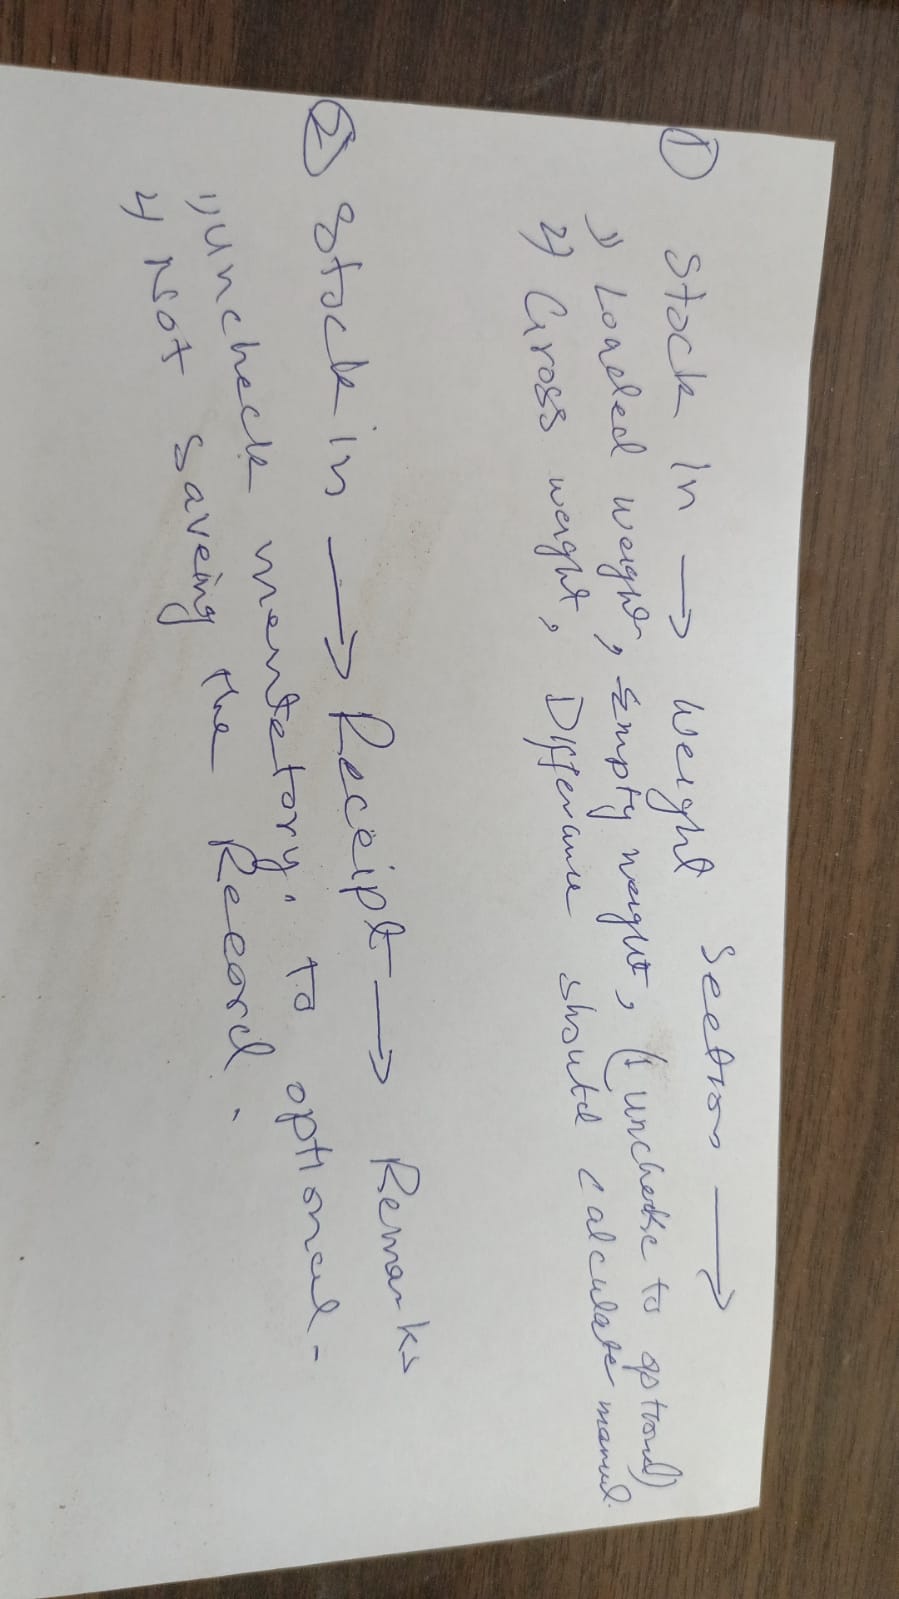 ① Stock In → Weight Section →
1) Loaded weight, Empty weight, (1 uncheke to optional)
2) Gross weight, Differance should calculate manul.
② Stock in → Receipt → Remarks
1) uncheck mentetory. to optional.
2) Not saveing the Record.